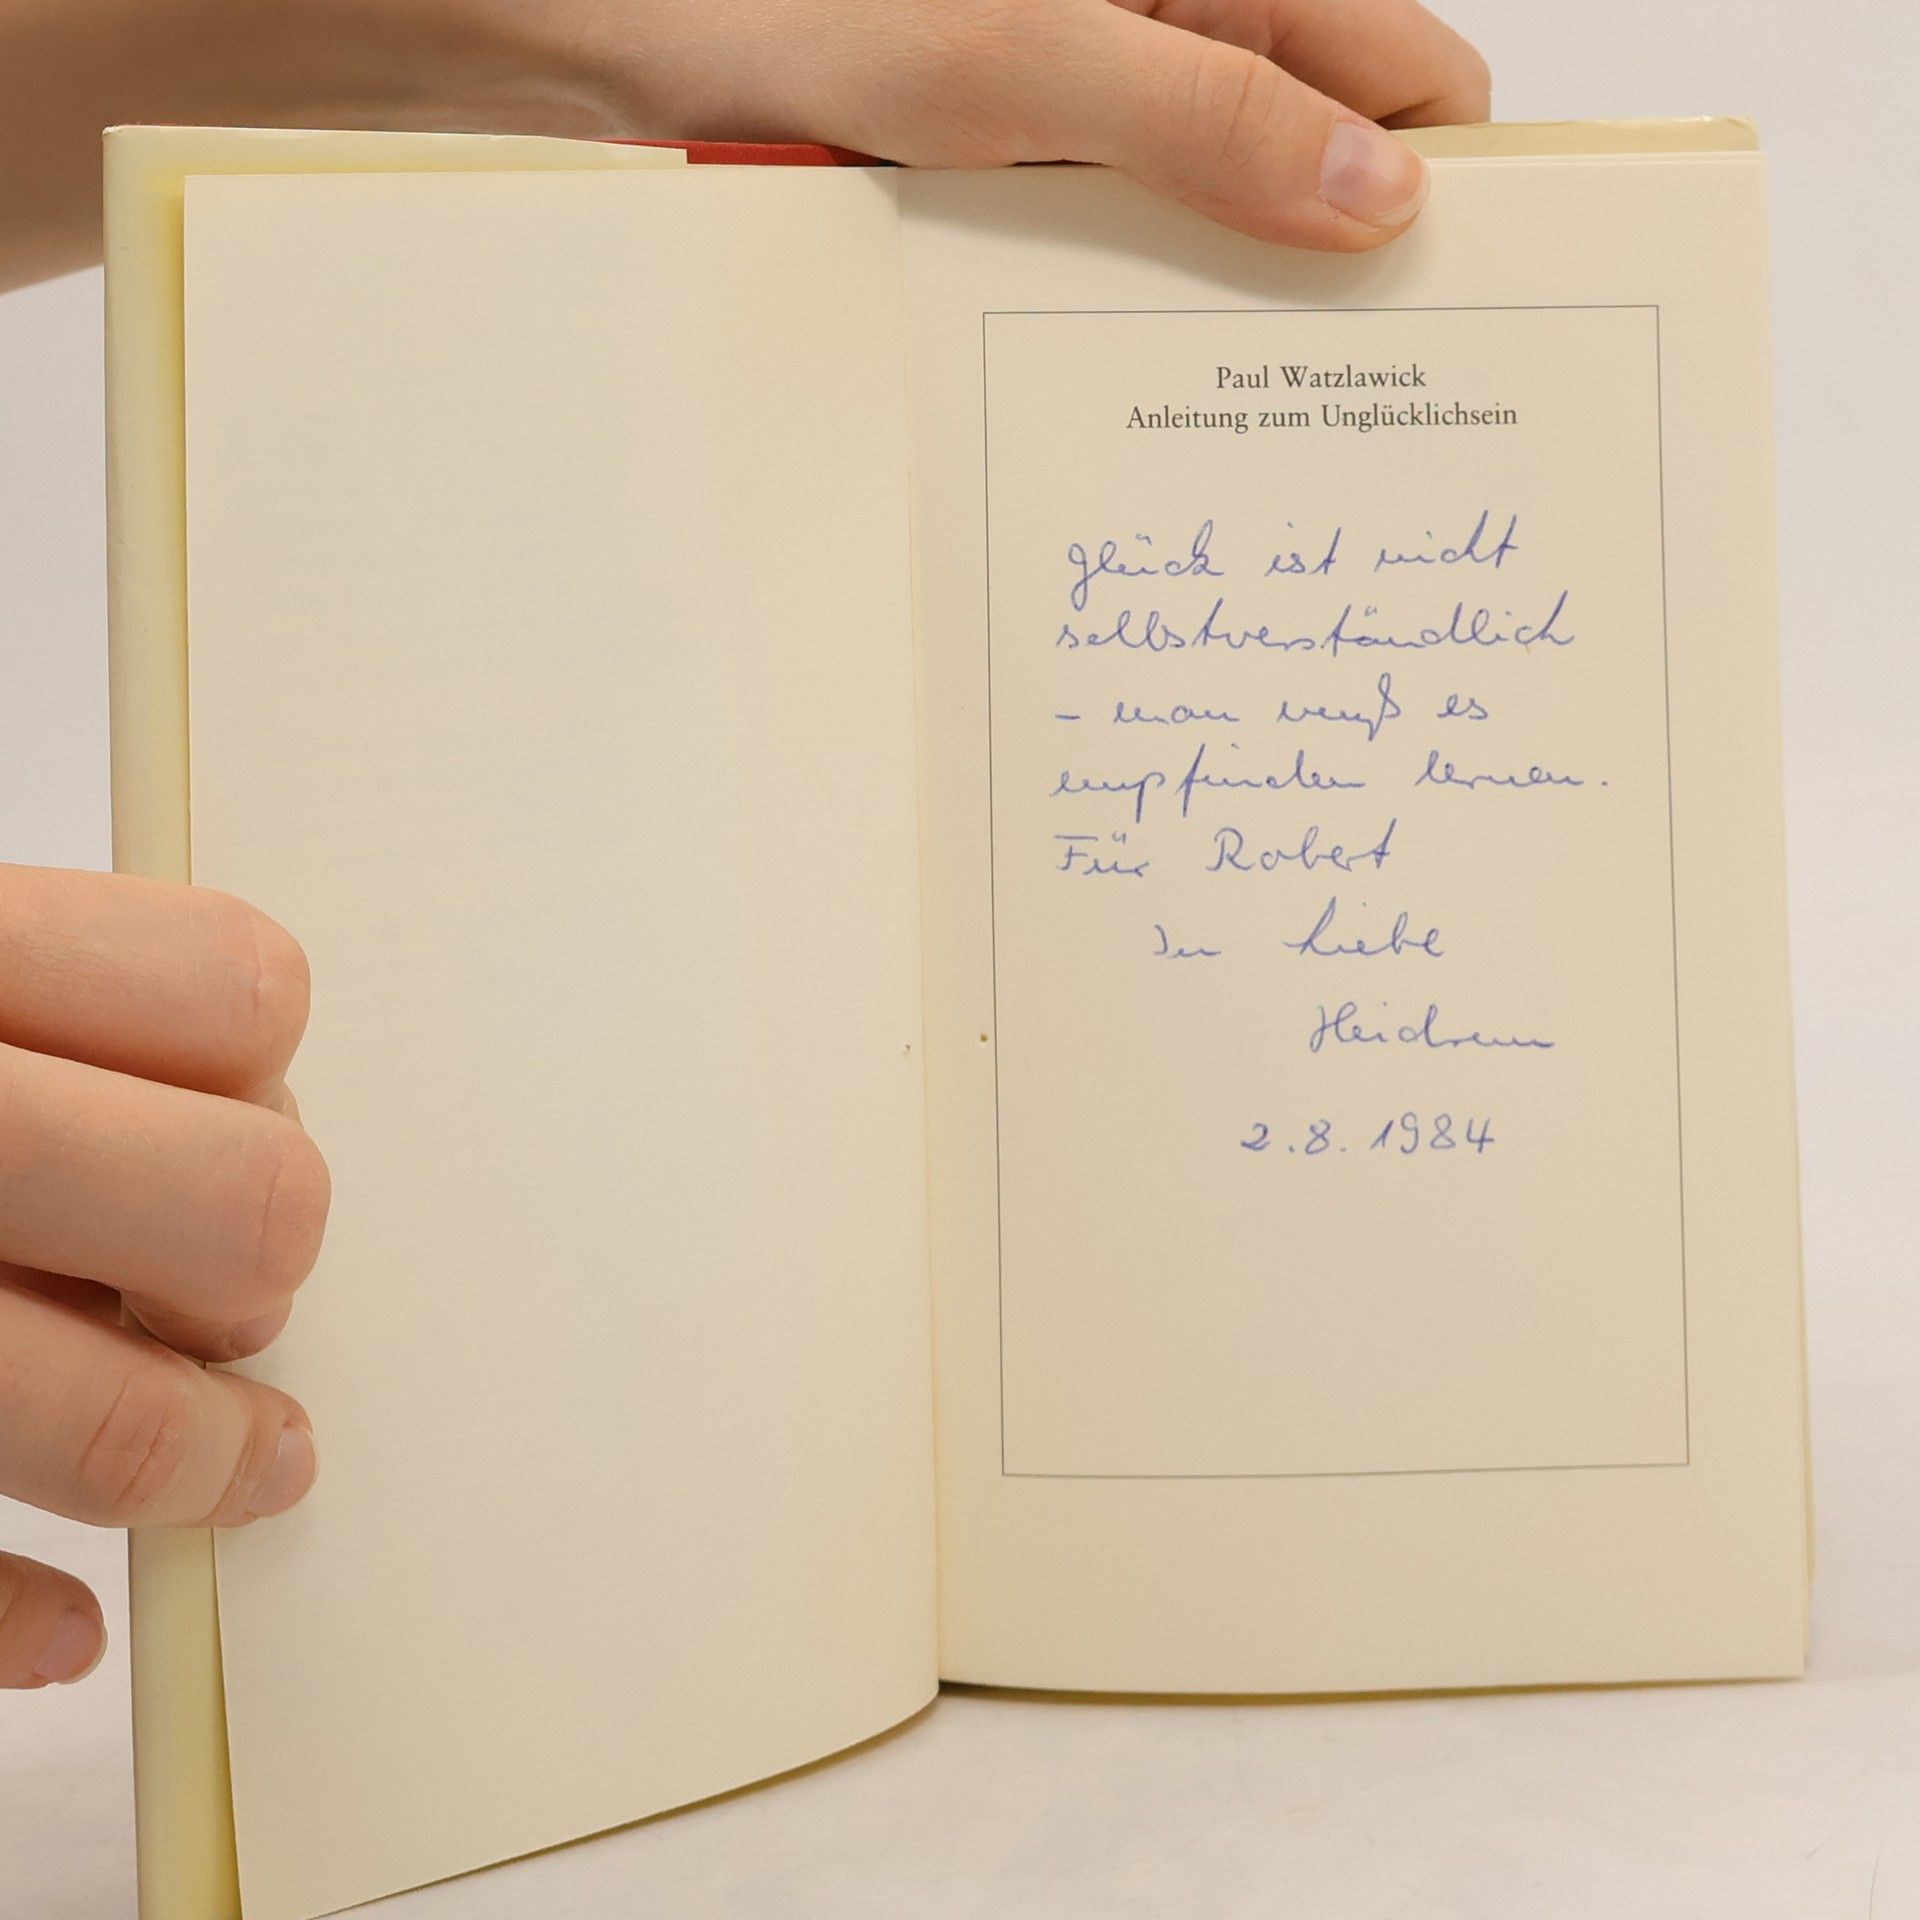 Paul Watzlawick
Anleitung zum Unglücklichsein
Glück ist nicht
selbstverständlich
– man muß es
empfinden lernen.
Für Robert
In Liebe
Heidrun
2.8.1984